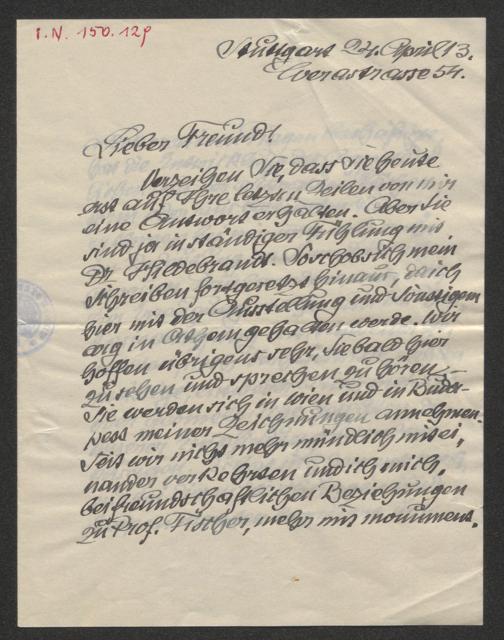 I.N. 150.129
Stuttgart 24. April 13.
Werastrasse 54.
Lieber Freund!
Verzeihen Sie, dass Sie heute
erst auf Ihre letzten Zeilen von mir
eine Antwort erhalten. Aber Sie
sind ja in ständiger Fühlung mit
Dr. Hildebrandt. So schob sich mein
Schreiben fortgesetzt hinaus, da ich
hier mit der Ausstellung und Sonstigem
arg in Athem gehalten werde. Wir
hoffen übrigens sehr, Sie bald hier
zu sehen und sprechen zu hören. –
Sie werden sich in Wien und in Buda-
pest meiner Zeichnungen annehmen.
Seit wir nichts mehr mündlich mitei-
nander verkehrten und ich mich,
bei freundschaftlichen Beziehungen
zu Prof. Fischer, mehr mit monument.